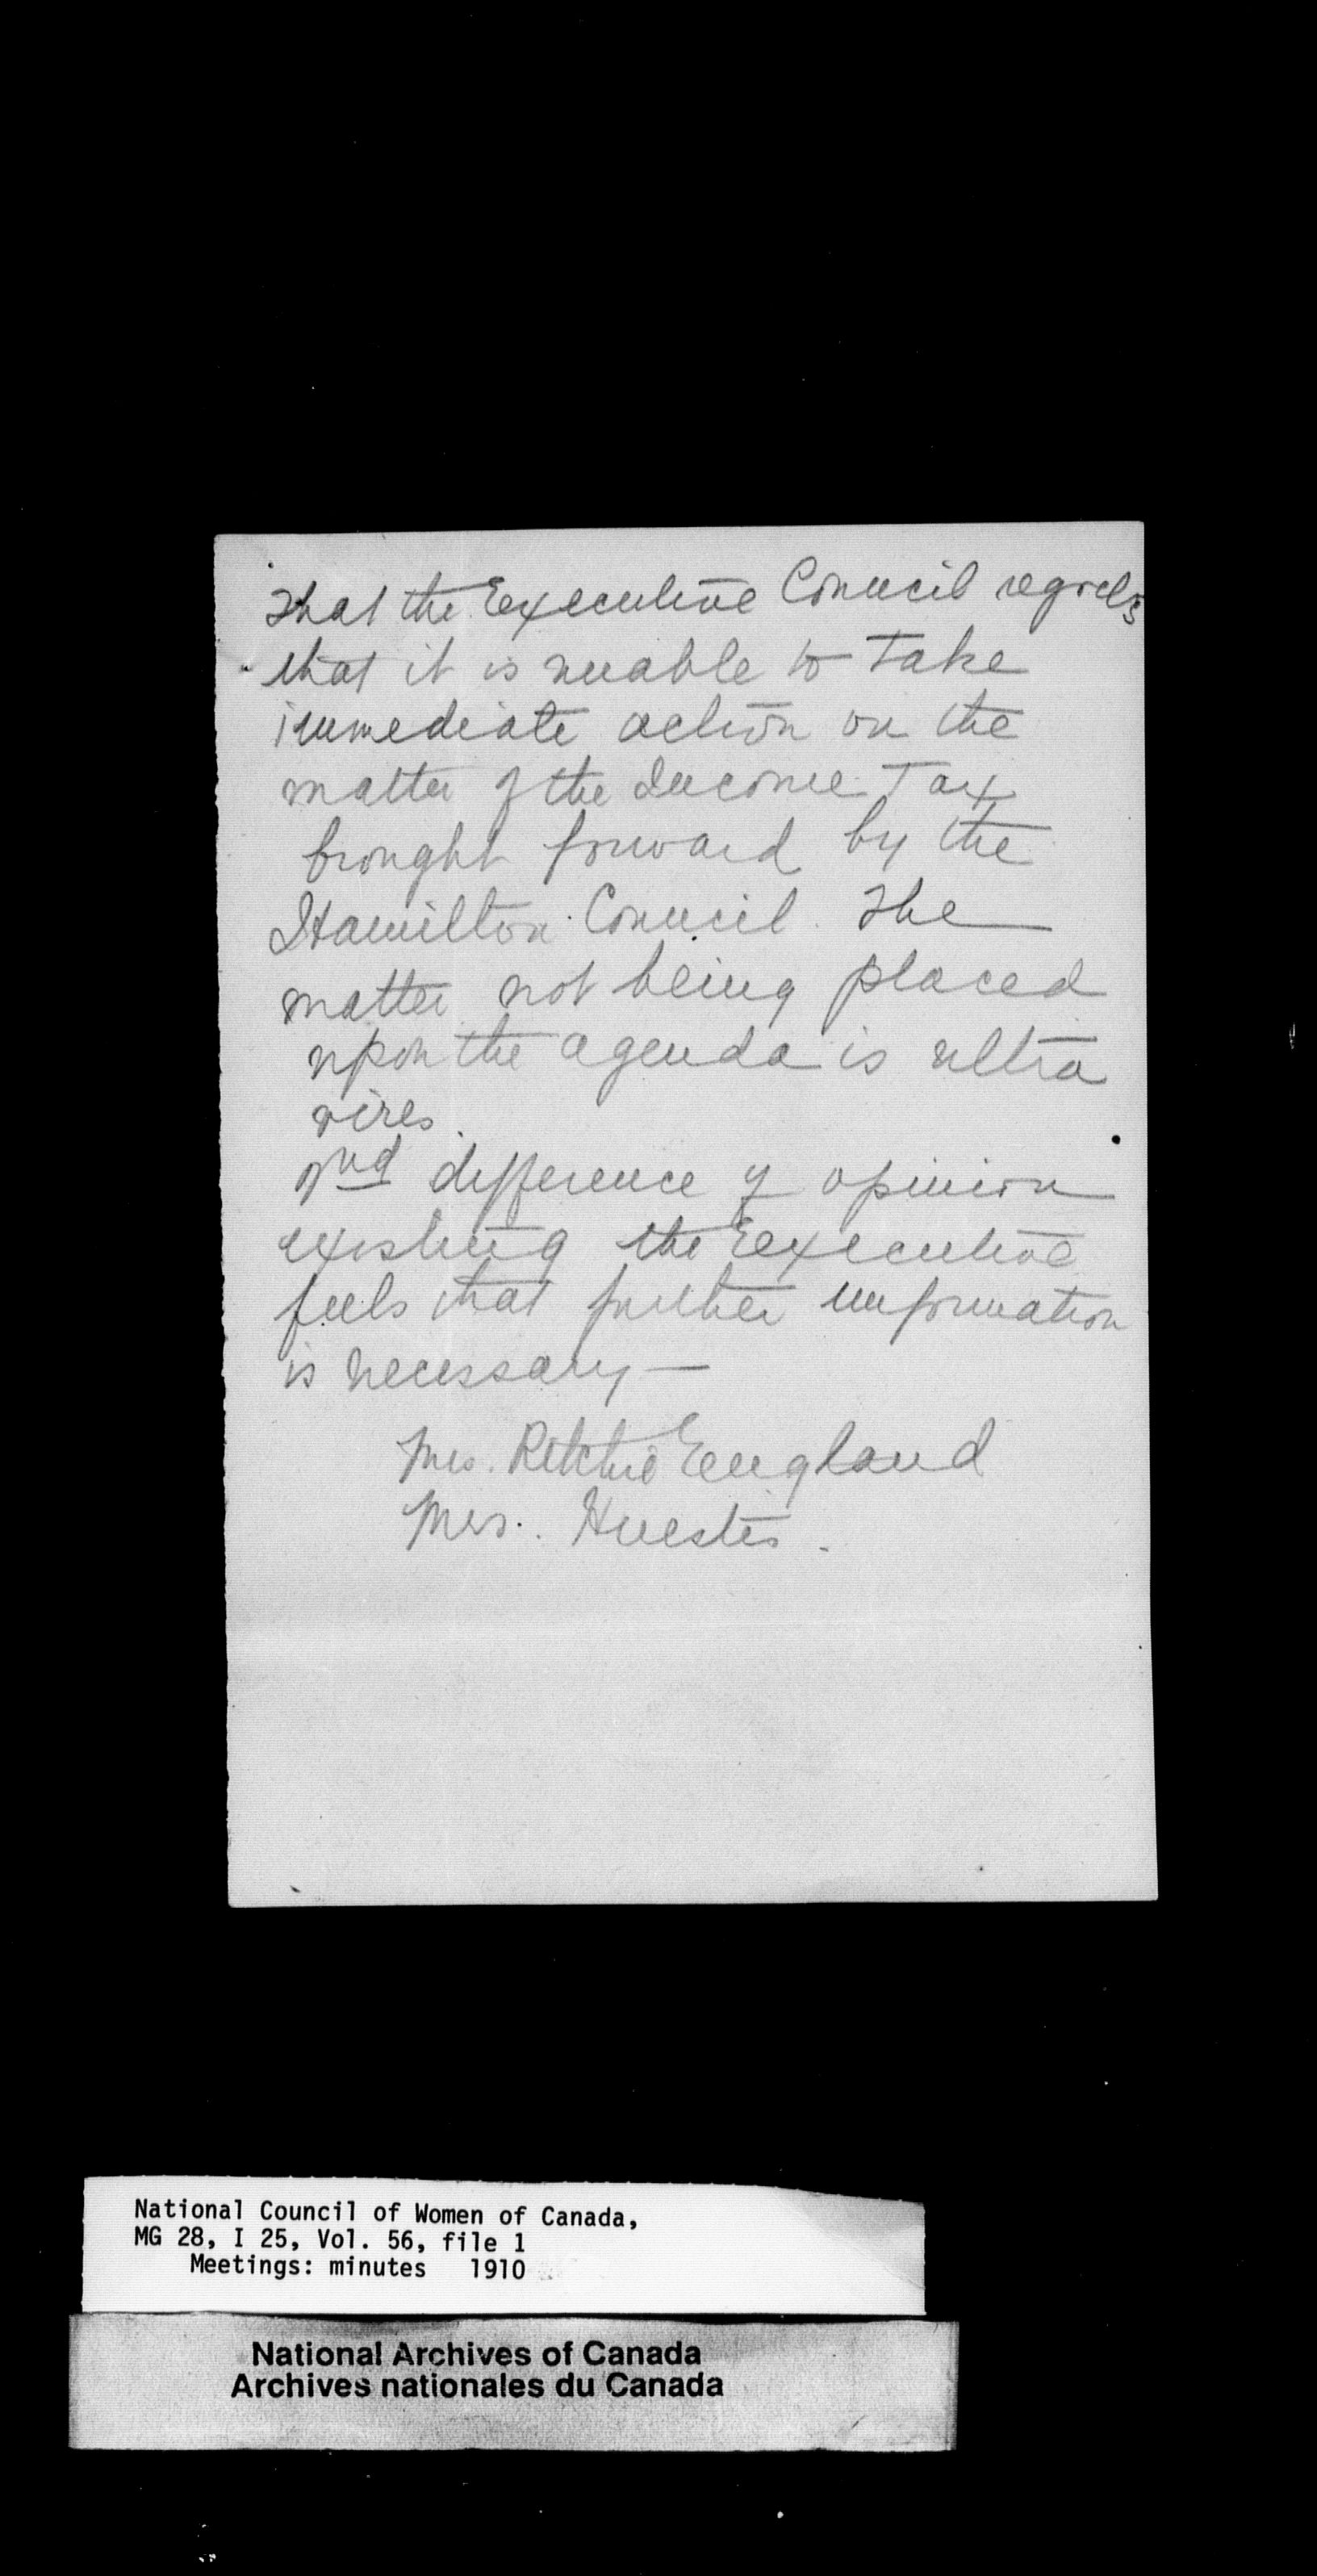 That the Executive Council regrets
that it is unable to take
immediate action on the
matter of the Income Tax
brought forward by the
Hamilton Council. The
matter not being placed
upon the agenda is ultra
vires.
2nd difference of opinion
existing the Executive
feels that further information
is necessary —
Mrs. Ritchie England
Mrs. Huestis.
National Council of Women of Canada,
MG 28, I 25, Vol. 56, file 1
Meetings: minutes 1910
National Archives of Canada
Archives nationales du Canada